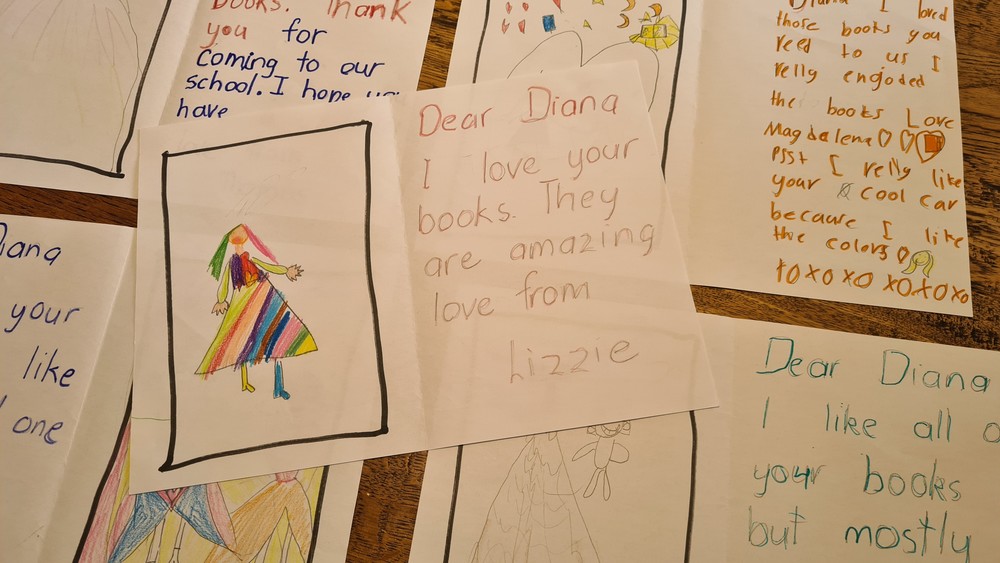 books. Thank
you for
coming to our
school. I hope
have
Dear Diana
I love your
books. They
are amazing
love from
Lizzie
Diana I loved
those books you
reed to us I
relly engoded
the books Love
Magdalena
Psst I relly like
your cool car
because I like
the colors
xoxoxo xoxoxo
Diana
your
like
one
Dear Diana
I like all
your books
but mostly